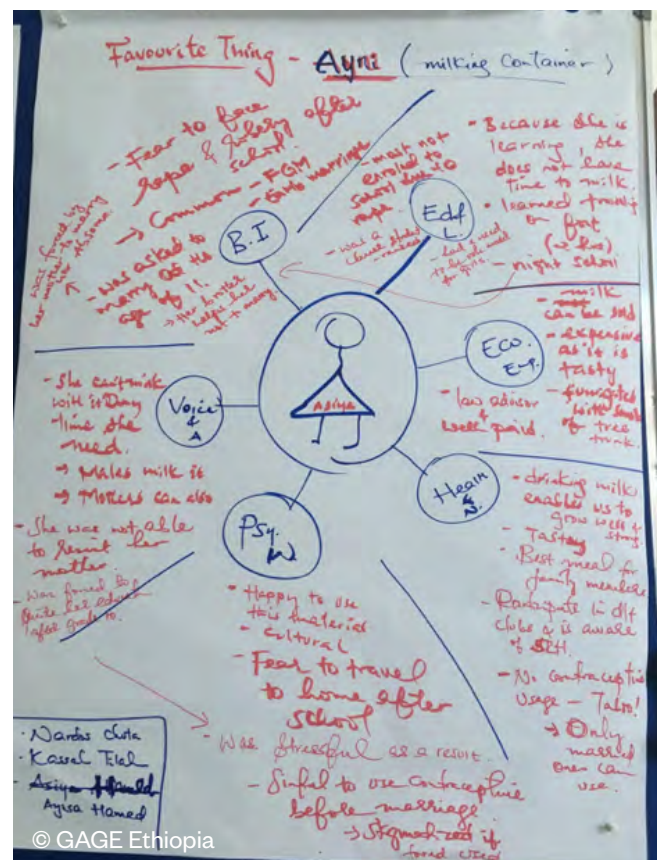 Favourite Thing - Ayni (milking container)
- Fear to face
rape & after
school.
→ Common - FGM
marriage
- was asked to
marry at the
age of 11.
→ Her brother
helped her
not to marry.
was forced by
her mother to marry
B.I
- most not
enrolled to
school due to
- was a
Edu
L.
- Because she is
learning, she
does not have
time to milk.
- learned
on foot
- night school
- had a need
to be
for girls.
Eco.
Emp.
- milk
can be sold
- expensive
as it is
tasty
- fumigated
with smoke
of tree
trunk.
- law advisor
&
well paid.
Asiya
Voice
& A
- She can't milk
with it Day
time she
need.
→ Males milk it
→ Mothers can also
- She was not able
to resist her
mother.
- Was forced to
quite her
after grade 10.
Health
& N.
- drinking milk
enables us to
grow well &
strong
- Tasty
- Best meal for
family members
- Participate in dif
clubs & is aware
of SRH.
- No contraceptive
usage - Taboo!
→ Only
married
ones can
use.
Psy.
W
- Happy to use
this material
- cultural
- Fear to travel
to home after
school
- Was stressful as a result.
- Sinful to use contraceptive
before marriage.
→ Stigmatized if
found used
- Nardos Chuta
- Kassah Telah
- Asiya
Ayisa Hamed
© GAGE Ethiopia